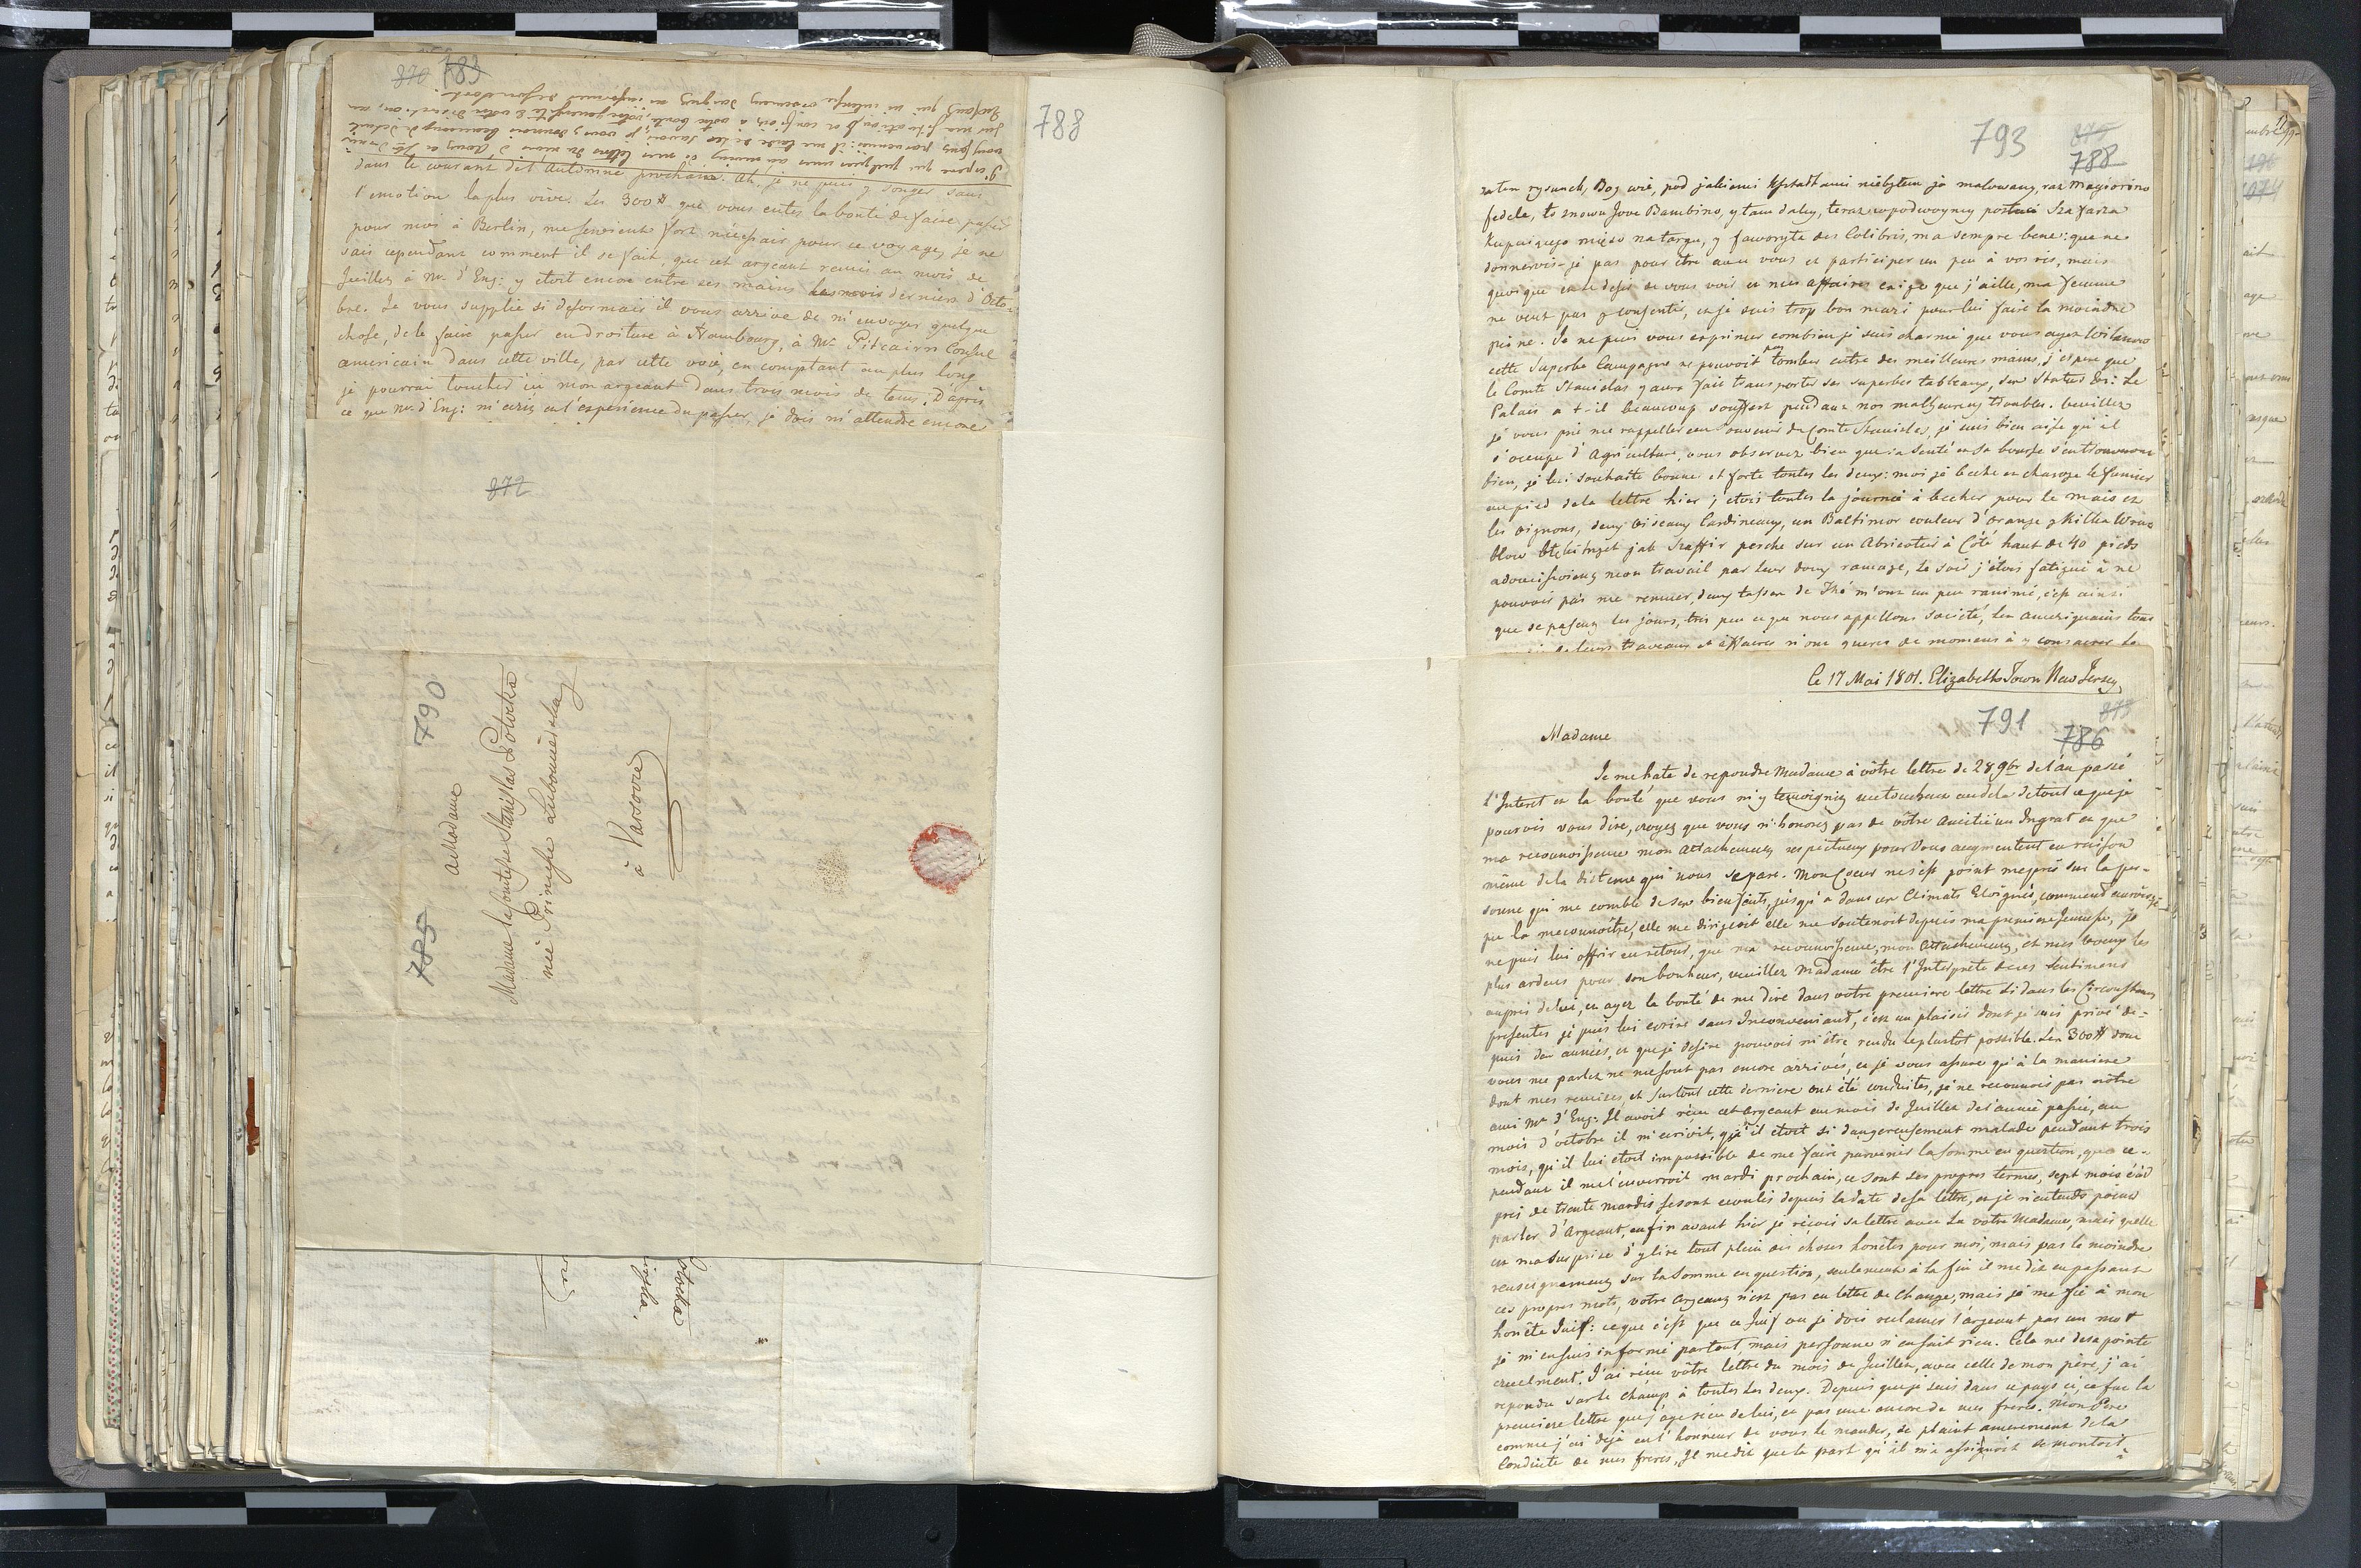 870 783
788
J'espere que quelques unes au moins de mes lettres du mois d'Aout et
dans le courant de l'Automne prochain. Ah, je ne puis y songer sans
l'emotion la plus vive. Les 300# que vous eutes la bonté de faire passer
pour moi à Berlin, me seroient fort necessair pour ce voyage, je ne
sais cependant comment il se fait, que cet argeant remis au mois de
Juillet à Mr. d'Eng: y etoit encor entre ses mains les derniers d'Octo-
bre. Je vous supplie si desormais il vous arrive de m'envoyer quelque
chose, de le faire passer en droiture à Hambourg, à Mr Pitcairn Consul
americain dans cette ville, par cette voie, en comptant au plus long
je pourrai toucher ici mon argeant dans trois mois de tems. D'après
ce que Mr. d'Eng: m'ecrit et l'experience du passer, je dois m'attendre encore
872
790
785
à Madame
Madame la Comtesse Stanislas Potocka
née Princesse Lubomirska
à Varsovie
793 875
788
za ten rysunek, Bog wie, pod jakiemi Kształtami niebyłem ja malowany, raz Magiorino
fedele, to znowu Jove Bambino, y tam daley, teraz w podwoyney postaci Szafarza
Kupuiącego mięso na targu, y faworyta des Colibris, ma sempre bene: que ne
donnerois-je pas pour être avec vous et participer un peu à vos ris, mais
quoique et le desir de vous voir et mes affaires exige que j'aille, ma femme
ne veut pas y consentir, et je suis trop bon mari pour lui faire la moindre
peine. Je ne puis vous exprimer combien je suis charmé que vous ayez Wilanow
cette superbe Campagne ne pouvoit pas tomber entre des meilleures mains, j'espere que
le Comte Stanislas y aura fait transporter ses superbes tableaux, ses Statues &c: Le
Palais a t-il beaucoup souffert pendant nos malheureux troubles. Veuillez
je vous prie me rappeller au souvenir du Comte Stanislas, je suis bien aise qu'il
s'occupe d'Agriculture, vous observez bien que sa santé et sa bourse s'en trouveront
bien, je lui souhaite bonne et forte toutes les deux: moi je beche et charoye le fumier
au pied de la lettre hier j'etois toutes la journée à becher pour le mais et
les oignons, deux oiseaux Cardineaux, un Baltimor couleur d'orange y Kilka Wron
blow błękitnych jak Szaffir perche sur un Abricotier à Côté haut de 40 pieds
adoucissoient mon travail par leur doux ramage, le soir j'étois fatigué à ne
pouvoir pas me remuer, deux tasses de Thé m'ont un peu ranimé, c'est ainsi
que se passent les jours, très peu ce que nous appellons société, les ameriquains tous
leurs travaux et affaires n'ont gueres de momens à y consacrer
Ce 17 Mai 1801. Elizabeth Town New Jersey
791 873
786
Madame
Je me hate de repondre Madame à vôtre lettre de 28 9br de l'an passé
l'Interet et la bonté que vous m'y temoignez me touchent au dela de tout ce que je
pourois vous dire, croyez que vous n'honorez pas de vôtre amitié un Ingrat et que
ma reconnoissance mon attachement respectueux pour Vous augmentent en raison
même de la distance qui nous separe. Mon Coeur ne s'est point mepris sur la per-
sonne qui me comble de ses bienfaits, jusqu'a dans ces Climats Eloignés, comment aurois je
pu la meconnoitre, elle me dirigeoit elle me soutenoit depuis ma premiere Jeunesse, je
ne puis lui offrir en retour, que ma reconnoissance, mon attachement, et mes voeux les
plus ardens pour son bonheur, veuillez Madame être l'Interprete de ces sentimens
aupres de lui, et ayez la bonté de me dire dans votre premiere lettre si dans les Circonstances
presentes je puis lui ecrire sans Inconveniant, c'est un plaisir dont je suis privé de-
puis des années, et que je desire pouvoir m'être rendu le plustôt possible. Les 300# dont
vous me parlez ne me sont pas encore arrivés, et je vous assure qu'à la maniere
dont mes remises, et surtout cette derniere ont été conduites, je ne reconnois pas nôtre
ami Mr d'Eng: Il avoit reçu cet argeant au mois de Juillet de l'année passée, au
mois d'octobre il m'ecrivit, qu'il etoit si dangereusement malade pendant trois
mois, qu'il lui etoit impossible de me faire parvenir la somme en question, que ce-
pendant il me l'enverroit mardi prochain, ce sont ses propres termes, sept mois c'ad
près de trente mardis se sont ecoulés depuis la date de sa lettre, et je n'entends point
parler d'Argeant, enfin avant hier je reçois sa lettre avec la votre Madame, mais quelle
est ma surprise d'y lire tout plein des choses honêtes pour moi, mais pas le moindre
renseignement sur la Somme en question, seulement à la fin il me dit en passant
ces propres mots, votre argeant n'est pas en lettre de Change, mais je me fie à mon
honête Juif: ce que c'est que ce Juif ou je dois reclamer l'argeant pas un mot
je m'en suis informé partout, mais personne n'en sait rien. Cela me desapointe
cruelment. J'ai reçu vôtre lettre du mois de Juillet, avec celle de mon père, j'ai
repondu sur le champ à toutes les deux. Depuis que je suis dans ce pays ci, ce fut la
premiere lettre que j'aye reçu de lui, et pas une encore de mes freres. Mon Pere
comme j'ai deja eu l'honneur de vous le mander, se plaint amerement de la
Conduite de mes freres, Il me dit que la part qu'il m'a assignoit se montoit